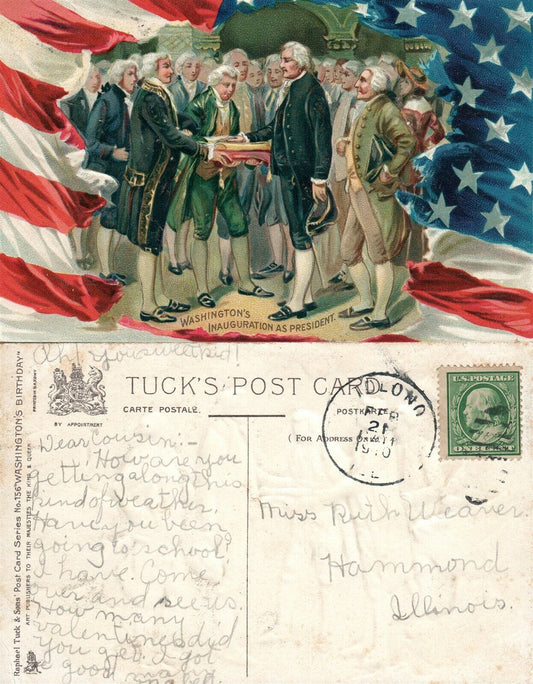 WASHINGTON'S
INAUGURATION AS PRESIDENT.
Ah! You sweet kid!
TUCK'S POST CARD
CARTE POSTALE.
POSTKARTE
BY APPOINTMENT
( For Address Only )
Raphael Tuck & Sons' Post Card Series No. 156 "WASHINGTON'S BIRTHDAY"
ART PUBLISHERS TO THEIR MAJESTIES THE KING & QUEEN
PRINTED IN SAXONY
TOLONO
FEB
21
1910
ILL
U.S. POSTAGE
ONE CENT
Dear Cousin:-
How are you
getting along this
kind of weather.
Have you been
going to school?
I have. Come
over and see us.
How many
valentines did
you get. I got
a good many
Miss Ruth Weaver.
Hammond
Illinois.